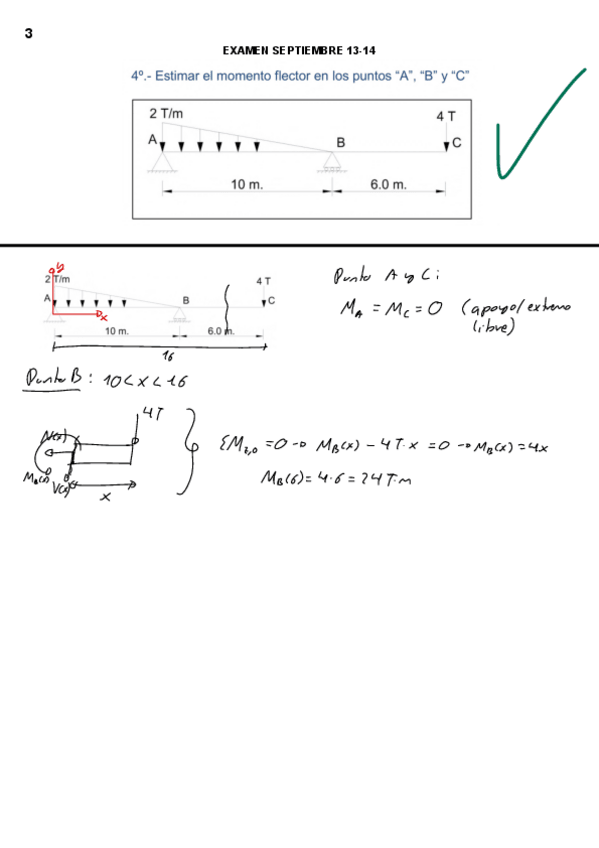 3
EXAMEN SEPTIEMBRE 13-14
4º.- Estimar el momento flector en los puntos “A”, “B” y “C”
2 T/m
4 T
A
B
C
10 m.
6.0 m.
y
2 T/m
4 T
A
B
C
x
10 m.
6.0 m.
16
Punto A y C:
M_A = M_C = 0 (apoyo/extremo libre)
Punto B: 10 < x < 16
4T
N(x)
M_B(x)
V(x)
x
ΣM_z,0 = 0 → M_B(x) - 4T·x = 0 → M_B(x) = 4x
M_B(6) = 4·6 = 24 T·m